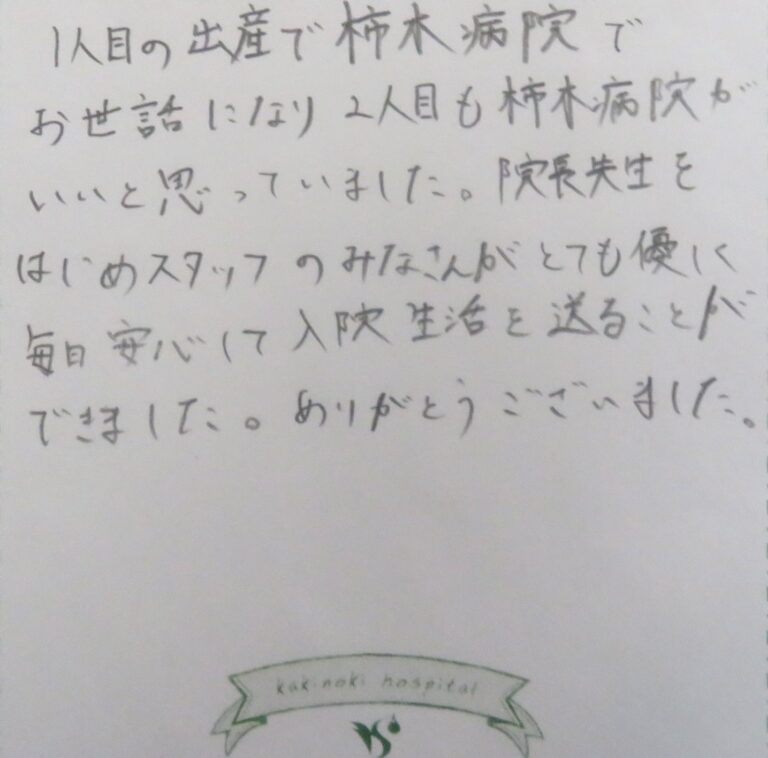 1人目の出産で柿木病院で
お世話になり 2人目も柿木病院が
いいと思っていました。院長先生を
はじめスタッフのみなさんがとても優しく
毎日安心して入院生活を送ることが
できました。ありがとうございました。
kakinoki hospital